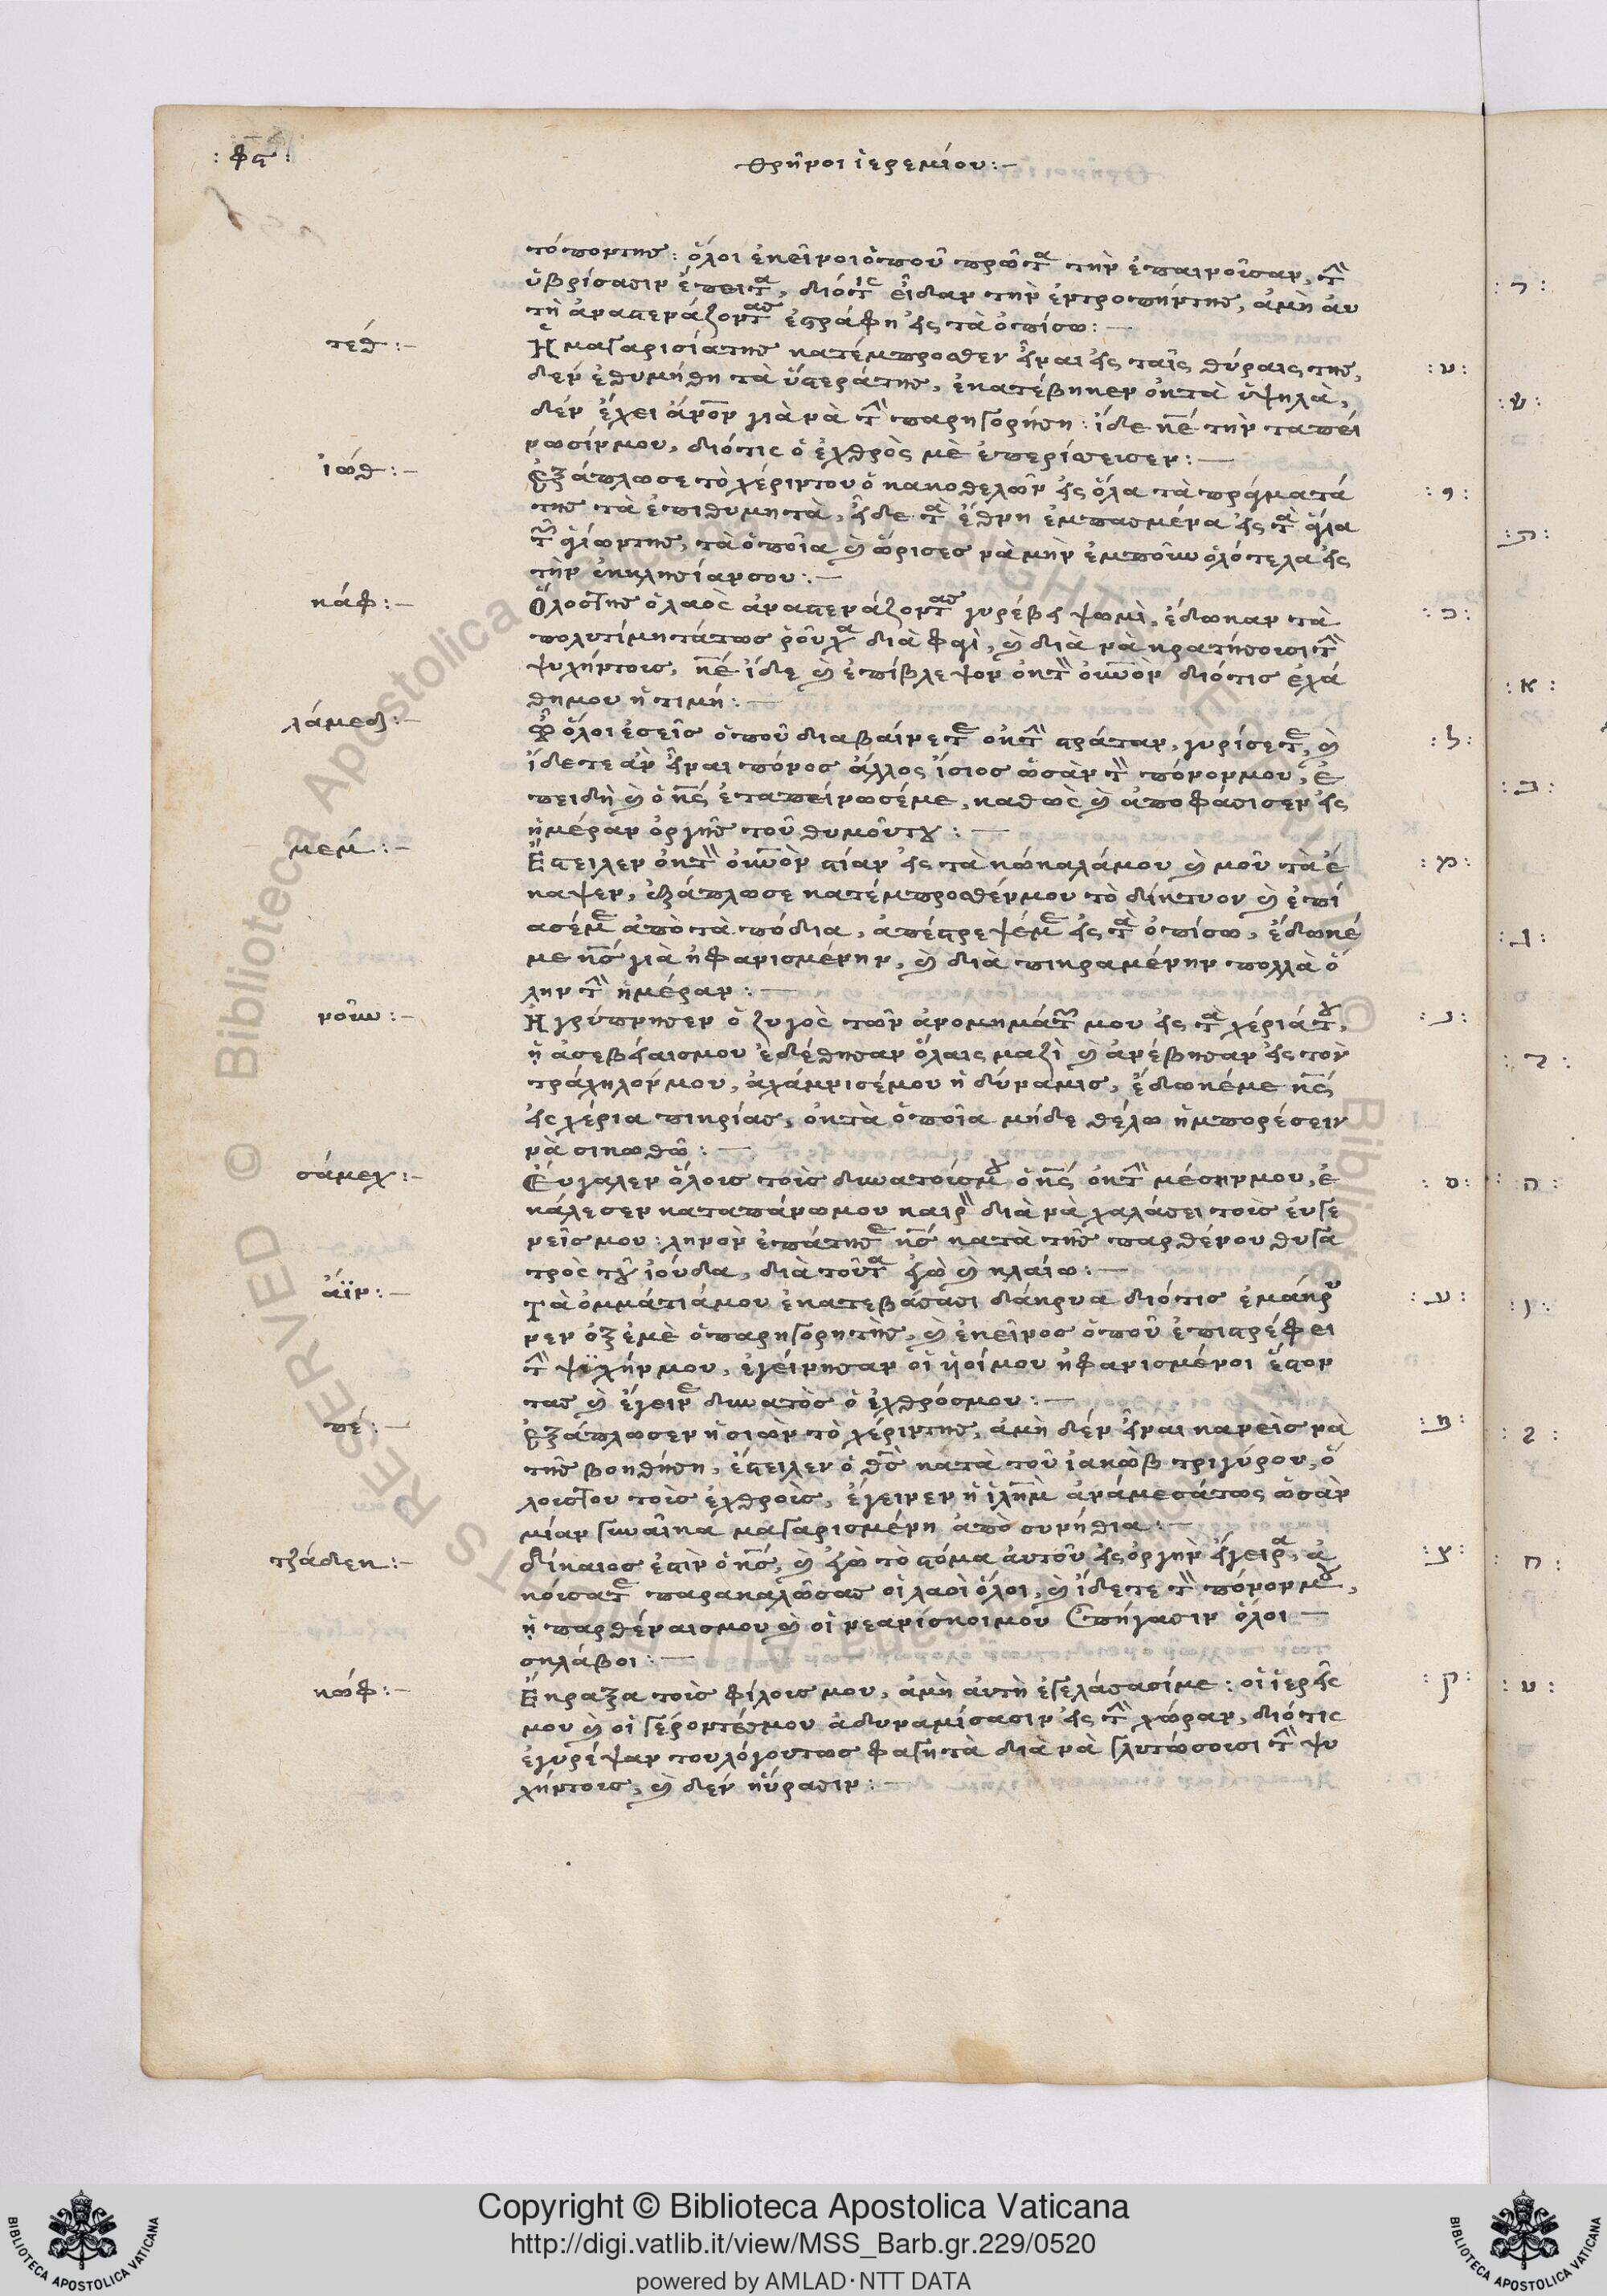 :φϛ:
θρῆνοι ἱερεμίου:—
τόπον της: ὅλοι ἐκεῖνοι ὁποῦ πρῶτα τὴν ἐπαινοῦσαν, τὴν
ὑβρίσασιν ἔπειτα, διότις εἶδαν τὴν ἐντροπήν της, ἀμὴ αὐ
τὴ ἀναστενάζοντας ἐστράφη εἰς τὰ ὀπίσω:—
τέθ:—
Ἡ μαγαρισιά της κατέμπροσθεν εἶναι εἰς ταῖς θύραις της,
δὲν ἐθυμήθη τὰ ὕστερά της, ἐκατέβηκεν ἐκ τὰ ὑψηλὰ,
δὲν ἔχει ἄνον γιὰ νὰ τὴν παρηγορήσῃ: ἴδε κε τὴν ταπεί
νωσίν μου, διότις ὁ ἐχθρὸς μὲ ἐπερίσσεισεν:—
ἰώθ:—
Ἐξάπλωσε τὸ χέριν του ὁ κακοθελὼν εἰς ὅλα τὰ πράγματά
της τὰ ἐπιθυμητὰ, εἶδε τὰ ἔθνη ἐμπασμένα εἰς τὰ ἅγια
τῶν ἁγίων της, τὰ ὁποῖα καὶ ὥρισες νὰ μὴν ἐμποῦν ὁλότελα εἰς
τὴν ἐκκλησίαν σου:—
κάφ:—
Ὅλος της ὁ λαὸς ἀναστενάζοντας γυρέβει ψωμὶ, ἐδώκαν τὰ
πολυτίμητά τως ῥοῦχα διὰ φαγὶ, καὶ διὰ νὰ κρατήσουσι τὴν
ψυχήν τους, κε ἴδε καὶ ἐπίβλεψον ἐκ τὸν οὐνὸν διότις ἐχά
θη μου ἡ τιμή:—
λάμεδ:—
Ὦ ὅλοι ἐσεῖς ὁποῦ διαβαίνετε ἐκ τὴν στράταν, γυρίσετε, καὶ
ἴδετε ἂν εἶναι πόνος ἄλλος ἴσιος ὡσὰν τὸν πόνον μου, ἐ
πειδὴ καὶ ὁ κς ἐταπείνωσέ με, καθὼς καὶ ἀποφάσισεν εἰς
ἡμέραν ὀργῆς τοῦ θυμοῦ του:—
μέμ:—
Ἔστειλεν ἐκ τὸν οὐνὸν στίαν εἰς τὰ κώκαλά μου καὶ μοῦ τὰ ἔ
καψεν, ἐξάπλωσε κατέμπροσθέν μου τὸ δίκτυον καὶ ἐπί
ασέ με ἀπὸ τὰ πόδια, ἀπέστρεψέ με εἰς τὰ ὀπίσω, ἔδωκέ
με κς γιὰ ἠφανισμένην, καὶ διὰ πικραμένην πολλὰ ὅ
λην τὴν ἡμέραν:—
νοῦν:—
Ἠγρύπνησεν ὁ ζυγὸς τῶν ἀνομημάτων μου εἰς τὰ χέριά του,
ἡ ἀσεβείαις μου ἐδέθησαν ὅλαις μαζὶ καὶ ἀνέβησαν εἰς τὸν
τράχηλόν μου, ἀχάμνισέ μου ἡ δύναμις, ἔδωκέ με κς
εἰς χέρια πικρίας, ἐκ τὰ ὁποῖα μήδε θέλω ἡμπορέσειν
νὰ σικωθῶ:—
σάμεχ:—
Εὔγαλεν ὅλους τοὺς δυνατούς μου ὁ κς ἐκ τὴν μέσην μου, ἐ
κάλεσεν καταπάνω μου καιρὸν διὰ νὰ χαλάσει τοὺς εὐγε
νεῖς μου: ληνὸν ἐπάτησε κς κατὰ τῆς παρθένου θυγα
τρὸς τοῦ ἰούδα, διὰ τοῦτα ἐγὼ καὶ κλαίω:—
ἄϊν:—
Τὰ ὀμμάτιά μου ἐκατεβάσασι δάκρυα διότις ἐμάκρυ
νεν ὀξ ἐμὲ ὁ παρηγορητὴς, καὶ ἐκεῖνος ὁποῦ ἐπιστρέφει
τὴν ψυχήν μου, ἐγείνησαν οἱ ὑοί μου ἠφανισμένοι ἔστον
τας καὶ ἔγεινε δυνατὸς ὁ ἐχθρός μου:—
πέ:—
Ἐξάπλωσεν ἡ σιὼν τὸ χέριν της, ἀμὴ δὲν εἶναι κανεὶς νὰ
τῆς βοηθήσῃ, ἔστειλεν ὁ θς κατὰ τοῦ ἰακὼβ τριγύρου, ὅ
λους του τοὺς ἐχθροὺς, ἔγεινεν ἡ ἰλημ ἀνάμεσά τως ὡσὰν
μίαν γυναῖκα μαγαρισμένη ἀπὸ συνήθια:—
τζάδεκ:—
Δίκαιος ἐστὶν ὁ κς, καὶ ἐγὼ τὸ στόμα αὐτοῦ εἰς ὀργὴν ἔγειρα, ἀ
κούσατε παρακαλῶ σας οἱ λαοὶ ὅλοι, καὶ ἴδετε τὸν πόνον μου,
ἡ παρθέναις μου καὶ οἱ νεανίσκοι μου ἐπήγασιν ὅλοι —
σκλάβοι:—
κώφ:—
Ἔκραξα τοὺς φίλους μου, ἀμὴ αὐτὴ ἐγελάσασί με: οἱ ἱερεῖς
μου καὶ οἱ γέροντές μου ἀδυναμίσασιν εἰς τὴν χώραν, διότις
ἐγυρέψαν του λόγου τως φαγητὰ διὰ νὰ γλυτώσουσι τὴν ψυ
χήν τους, καὶ δὲν ηὕρασιν:—
:ט:
:י:
:כ:
:ל:
:מ:
:נ:
:ס:
:ע:
:פ:
:צ:
:ק:
:ר:
:ש:
:ת:
:א:
:ב:
:ג:
:ד:
:ה:
:ו:
:ז:
:ח:
:ט:
Copyright © Biblioteca Apostolica Vaticana
http://digi.vatlib.it/view/MSS_Barb.gr.229/0520
powered by AMLAD·NTT DATA
BIBLIOTECA APOSTOLICA VATICANA
BIBLIOTECA APOSTOLICA VATICANA